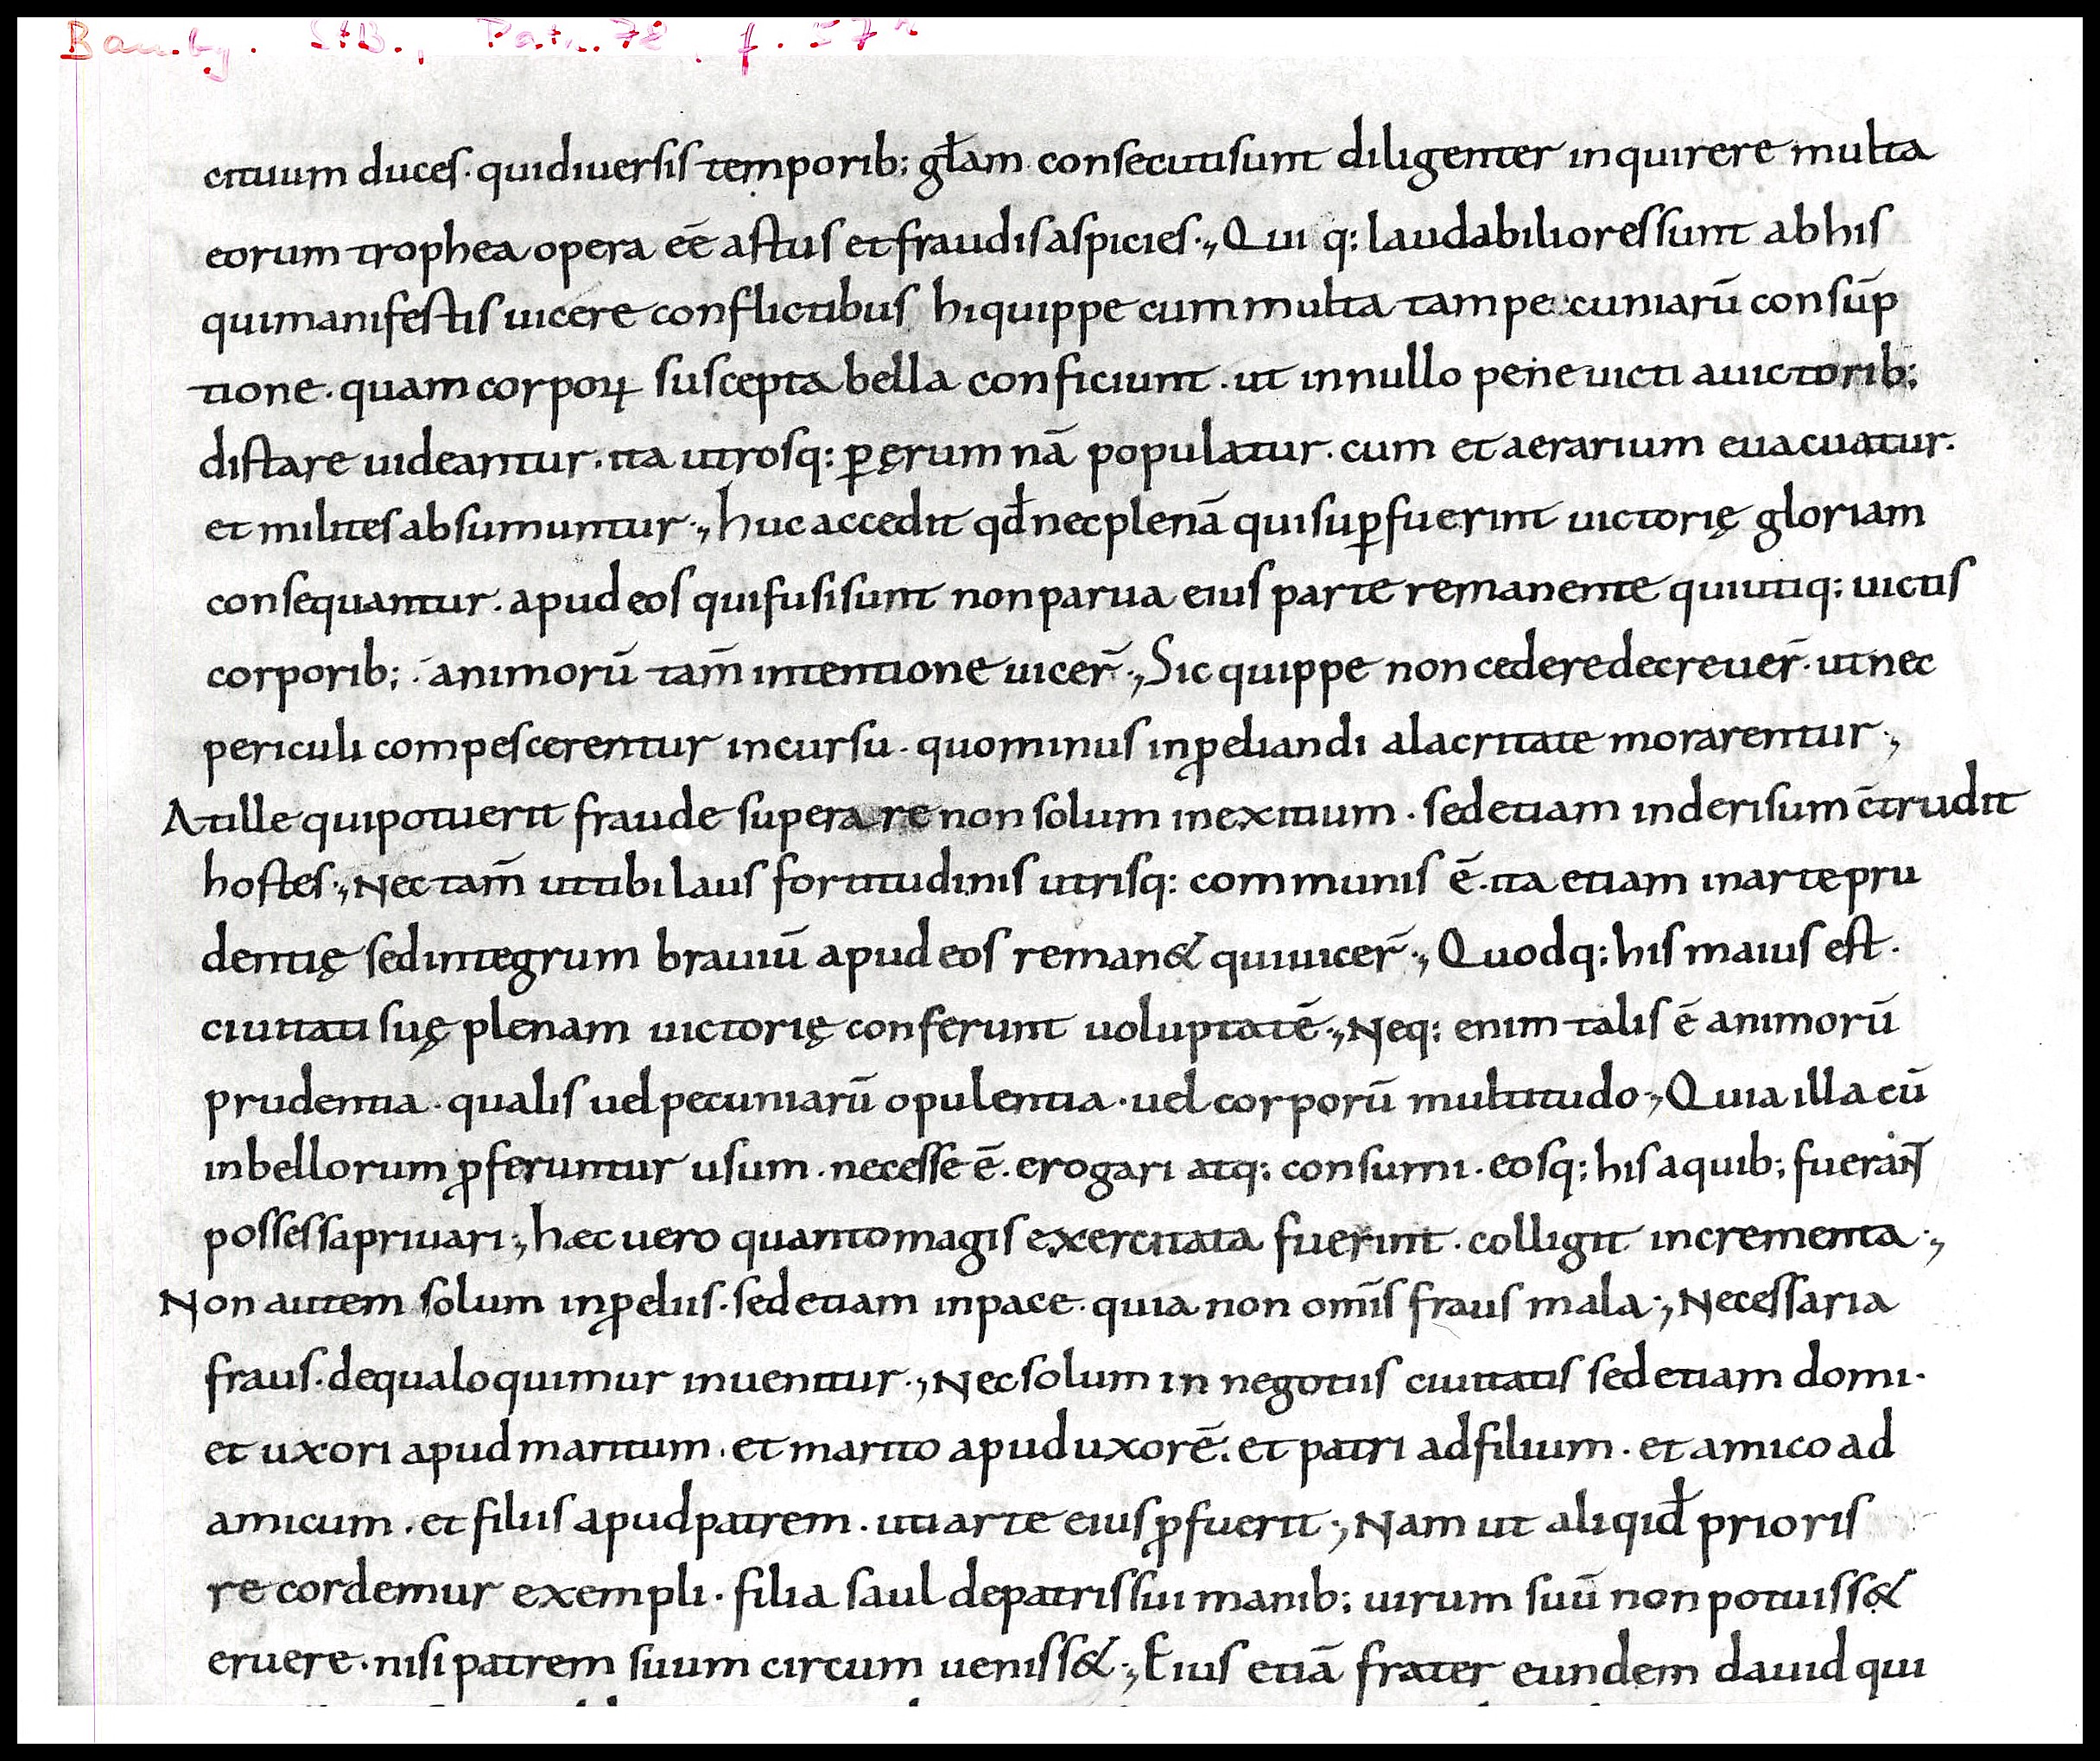 Bamberg. StB., Patr. 78, f. 57r
cituum duces · qui diuersis temporib; głam consecuti sunt diligenter inquirere multa
eorum trophea opera eē astus et fraudis aspicies ·, Qui q: laudabiliores sunt ab his
qui manifestis uicere conflictibus hi quippe cum multa tam pecuniarū consūp
tione · quam corpoꝝ suscepta bella conficiunt · ut in nullo pene uicti a uictorib;
distare uideantur · ita utrosq: ꝑ ęrumnā populatur · cum et aerarium euacuatur ·
et milites absumuntur ·, huc accedit qđ nec plenā qui suꝑfuerint uictorię gloriam
consequantur · apud eos qui fusi sunt non parua eius parte remanente qui utiq: uictis
corporib; · animorū tam̄ intentione uicer̄ ·, Sic quippe non cedere decreuer̄ · ut nec
periculi compescerentur incursu · quominus in ꝓeliandi alacritate morarentur ·,
At ille qui potuerit fraude superare non solum in exitium · sed etiam in derisum c̄trudit
hostes ·, Nec tam̄ ut ibi laus fortitudinis utrisq: communis ē · ita etiam in arte pru
dentię sed integrum brauiū apud eos reman& qui uicer̄ ·, Quodq: his maius est ·
ciuitati suę plenam uictorię conferunt uoluptatē ·, Neq: enim talis ē animorū
prudentia · qualis uel pecuniarū opulentia · uel corporū multitudo ·, Quia illa cū
in bellorum ꝓferuntur usum · necesse ē · erogari atq: consumi · eosq: his a quib; fuerant
possessa priuari ·, haec uero quanto magis exercitata fuerint · colligit incrementa ·,
Non autem solum in ꝓeliis · sed etiam in pace · quia non om̄is fraus mala ·, Necessaria
fraus · de qua loquimur inuenitur ·, Nec solum in negotiis ciuitatis sed etiam domi ·
et uxori apud maritum · et marito apud uxorē · et patri ad filium · et amico ad
amicum · et filiis apud patrem · uti arte eius ꝓfuerit ·, Nam ut aliqid̵ prioris
recordemur exempli · filia saul de patris sui manib; uirum suū non potuiss&
eruere · nisi patrem suum circumueniss& ·, Eius etiā frater eundem dauid qui